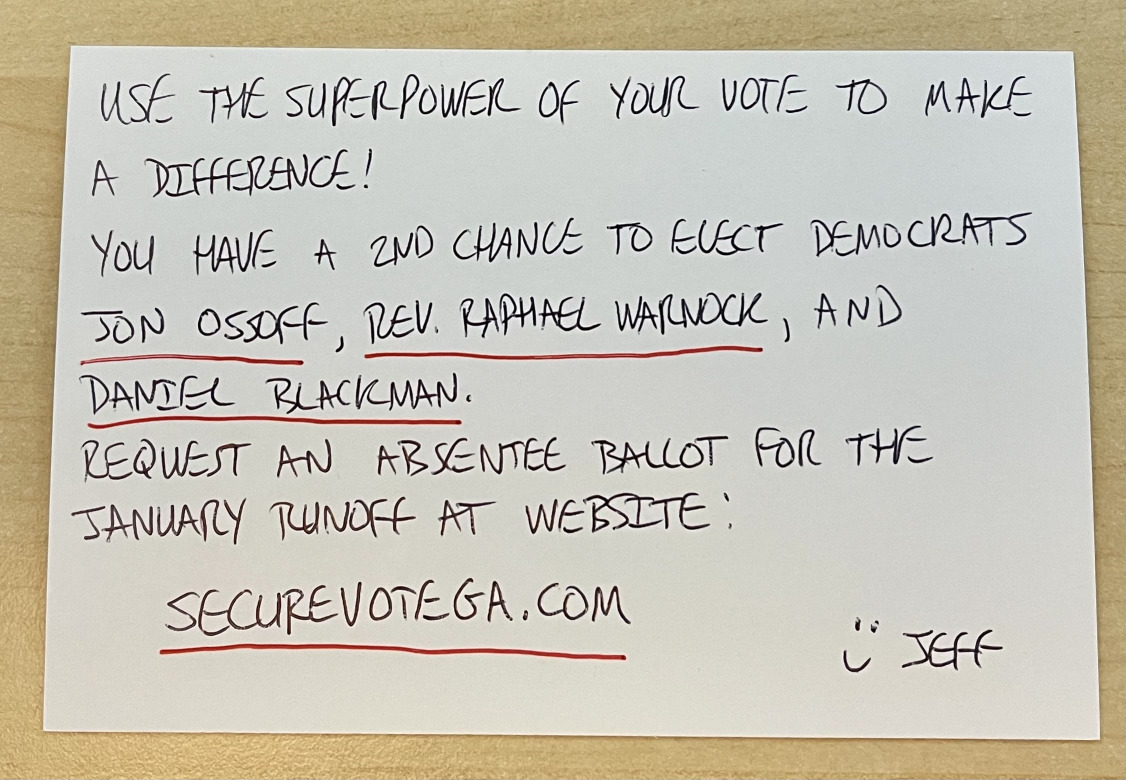 USE THE SUPERPOWER OF YOUR VOTE TO MAKE
A DIFFERENCE!
YOU HAVE A 2ND CHANCE TO ELECT DEMOCRATS
JON OSSOFF, REV. RAPHAEL WARNOCK, AND
DANIEL BLACKMAN.
REQUEST AN ABSENTEE BALLOT FOR THE
JANUARY RUNOFF AT WEBSITE:
SECUREVOTEGA.COM
JEFF